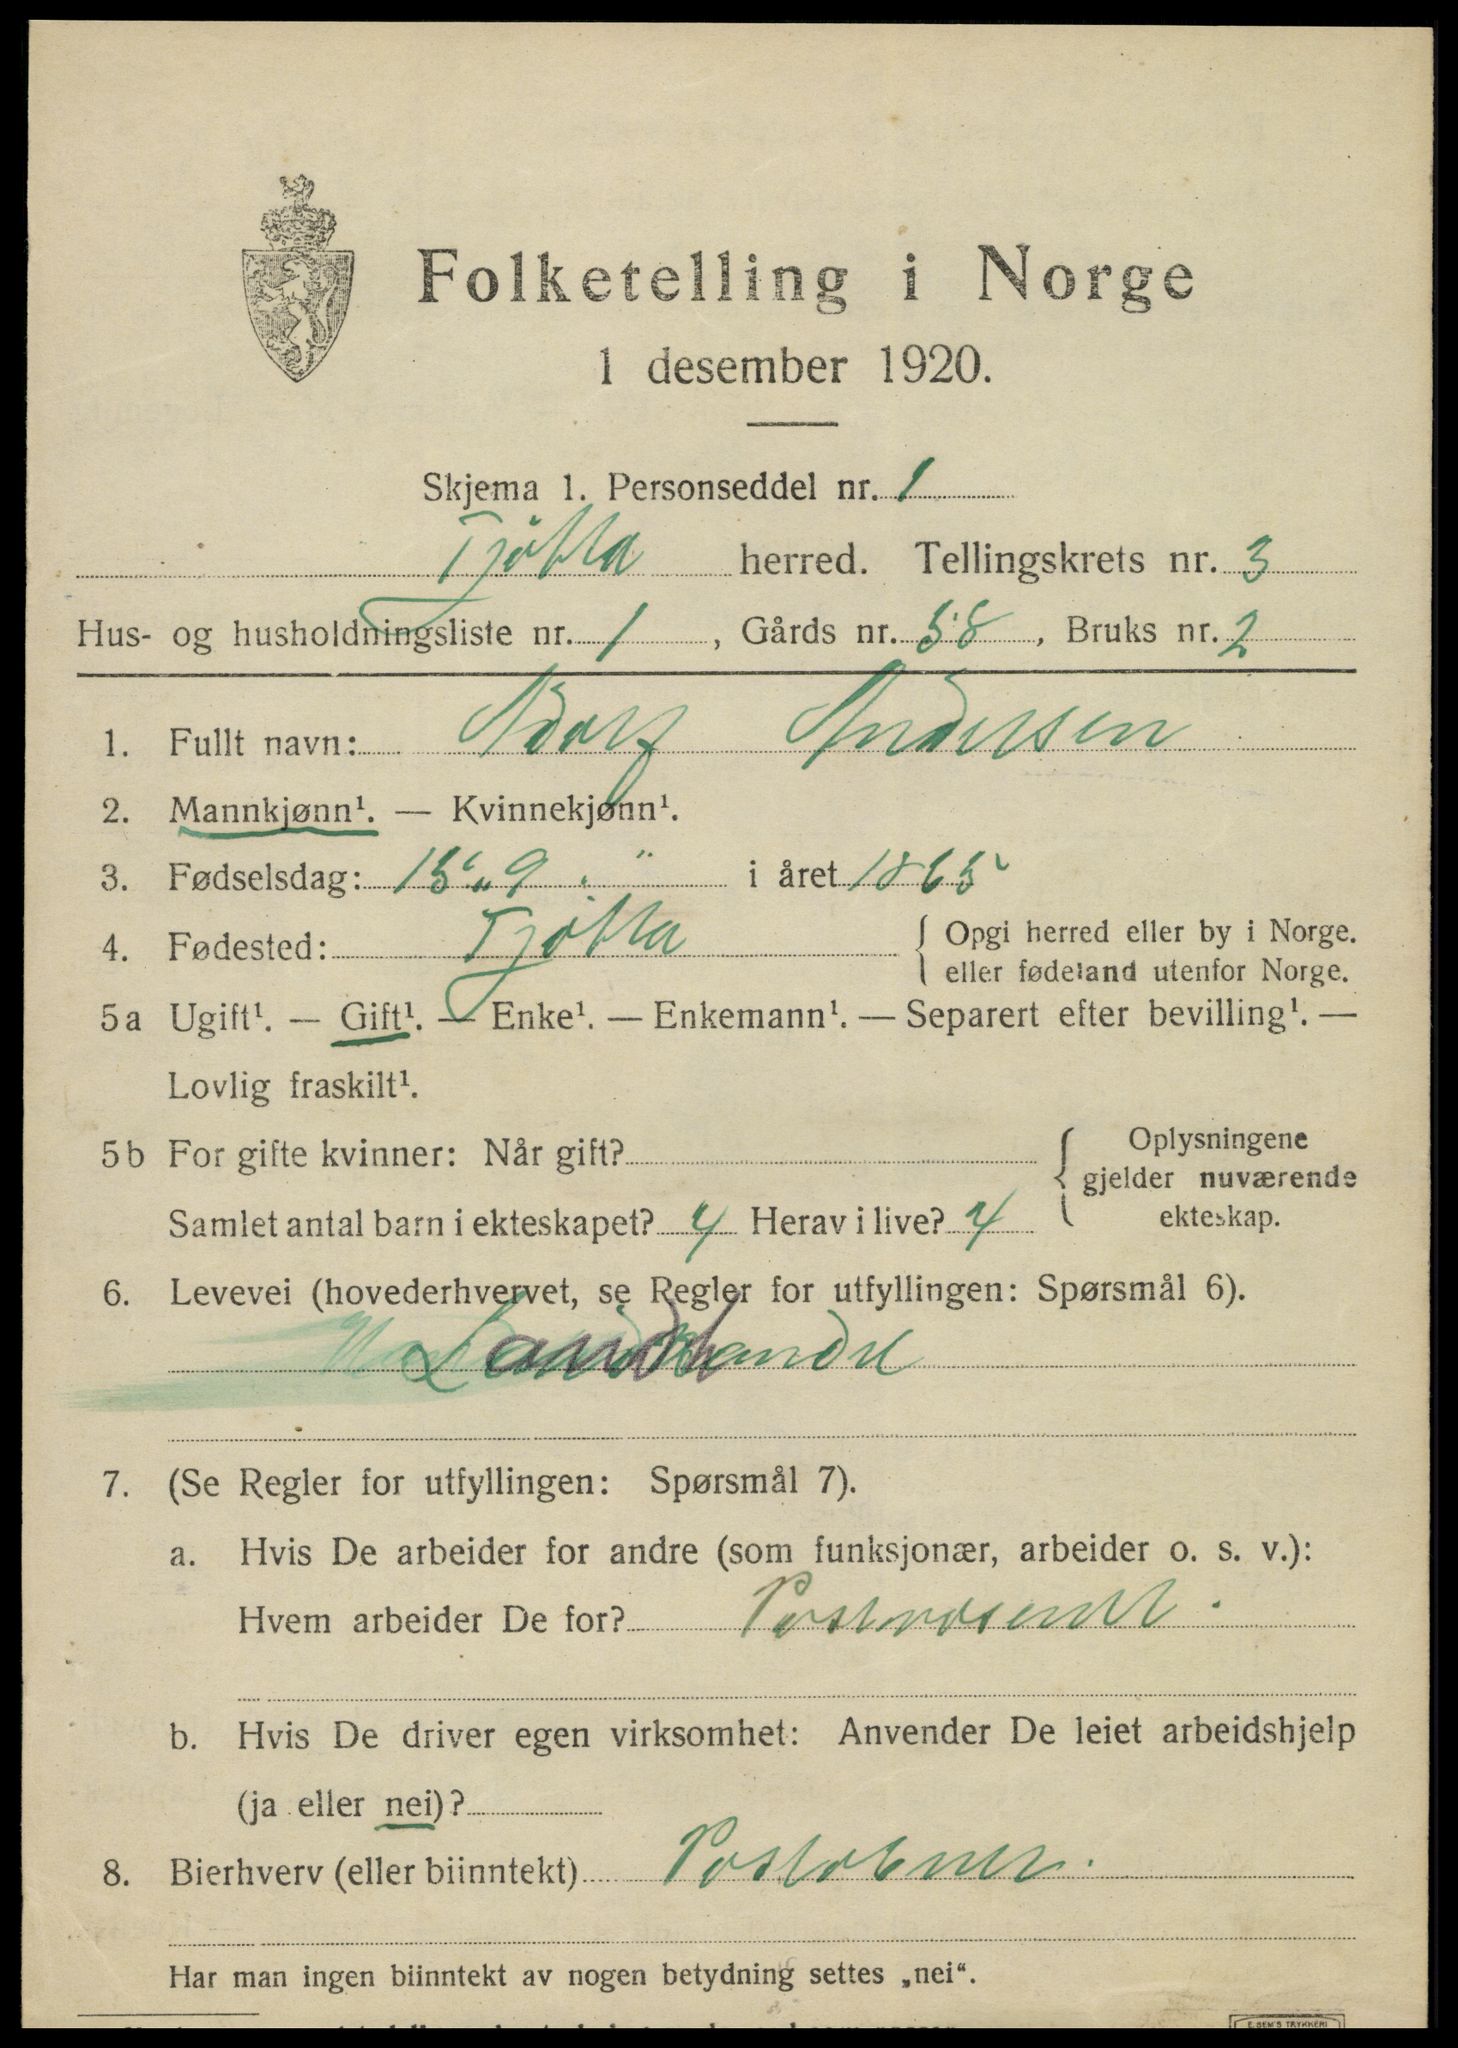 Folketelling i Norge
1 desember 1920.
Skjema 1. Personseddel nr. 1
Tjøtta herred. Tellingskrets nr. 3
Hus- og husholdningsliste nr. 1, Gårds nr. 58, Bruks nr. 2
1. Fullt navn: Adolf Andersen
2. Mannkjønn¹. — Kvinnekjønn¹.
3. Fødselsdag: 15 9 i året 1865
4. Fødested: Tjøtta { Opgi herred eller by i Norge.
eller fødeland utenfor Norge.
5a Ugift¹. — Gift¹. — Enke¹. — Enkemann¹. — Separert efter bevilling¹. —
Lovlig fraskilt¹.
5b For gifte kvinner: Når gift? { Oplysningene
gjelder nuværende
Samlet antal barn i ekteskapet? 4 Herav i live? 4 ekteskap.
6. Levevei (hovederhvervet, se Regler for utfyllingen: Spørsmål 6).
Landh
7. (Se Regler for utfyllingen: Spørsmål 7).
a. Hvis De arbeider for andre (som funksjonær, arbeider o. s. v.):
Hvem arbeider De for?
b. Hvis De driver egen virksomhet: Anvender De leiet arbeidshjelp
(ja eller nei)?
8. Bierhverv (eller biinntekt) Postobner.
Har man ingen biinntekt av nogen betydning settes „nei“.
E. SEM'S TRYKKERI